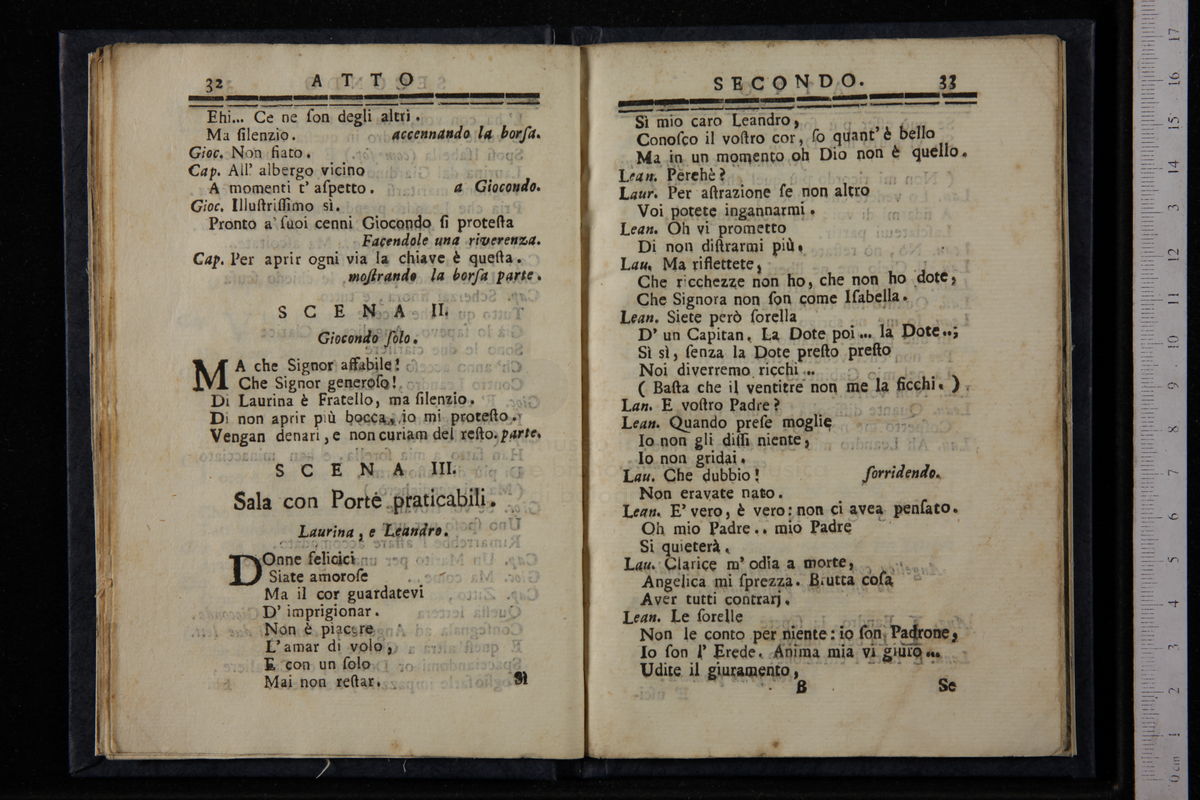 32 ATTO
Ehi... Ce ne ſon degli altri.
Ma ſilenzio. accennando la borſa.
Gioc. Non fiato.
Cap. All' albergo vicino
A momenti t' aſpetto. a Giocondo.
Gioc. Illuſtriſſimo sì.
Pronto a' ſuoi cenni Giocondo ſi proteſta
Facendole una riverenza.
Cap. Per aprir ogni via la chiave è queſta.
moſtrando la borſa parte.
SCENA II.
Giocondo ſolo.
MA che Signor affabile!
Che Signor generoſo!
Di Laurina è Fratello, ma ſilenzio.
Di non aprir più bocca, io mi proteſto.
Vengan denari, e non curiam del reſto. parte.
SCENA III.
Sala con Porte praticabili.
Laurina, e Leandro.
DOnne felicici
Siate amoroſe
Ma il cor guardatevi
D' imprigionar.
Non è piacere
L' amar di volo,
E con un ſolo
Mai non reſtar.
Sì
SECONDO. 33
Sì mio caro Leandro,
Conoſco il voſtro cor, ſo quant' è bello
Ma in un momento oh Dio non è quello.
Lean. Perchè?
Laur. Per aſtrazione ſe non altro
Voi potete ingannarmi.
Lean. Oh vi prometto
Di non diſtrarmi più.
Lau. Ma riflettete,
Che ricchezze non ho, che non ho dote,
Che Signora non ſon come Iſabella.
Lean. Siete però ſorella
D' un Capitan. La Dote poi... la Dote..;
Sì sì, ſenza la Dote preſto preſto
Noi diverremo ricchi...
( Baſta che il ventitre non me la ficchi. )
Lan. E voſtro Padre?
Lean. Quando preſe moglie
Io non gli diſſi niente,
Io non gridai.
Lau. Che dubbio! ſorridendo.
Non eravate nato.
Lean. E' vero, è vero: non ci avea penſato.
Oh mio Padre.. mio Padre
Si quieterà.
Lau. Clarice m' odia a morte,
Angelica mi ſprezza. Brutta coſa
Aver tutti contrarj.
Lean. Le ſorelle
Non le conto per niente: io ſon Padrone,
Io ſon l' Erede. Anima mia vi giuro...
Udite il giuramento,
B Se